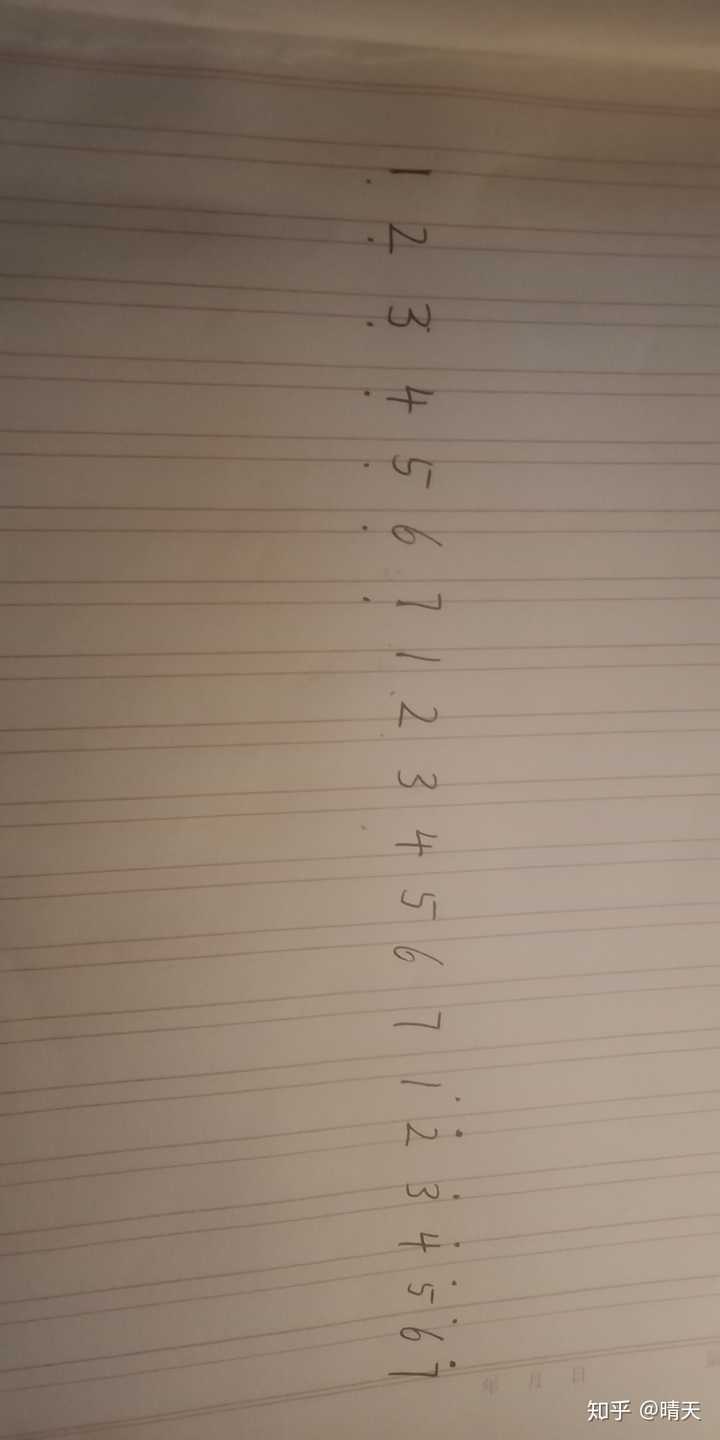 1̣ 2̣ 3̣ 4̣ 5̣ 6̣ 7̣ 1 2 3 4 5 6 7 1̇ 2̇ 3̇ 4̇ 5̇ 6̇ 7̇
年 月 日
知乎 @晴天